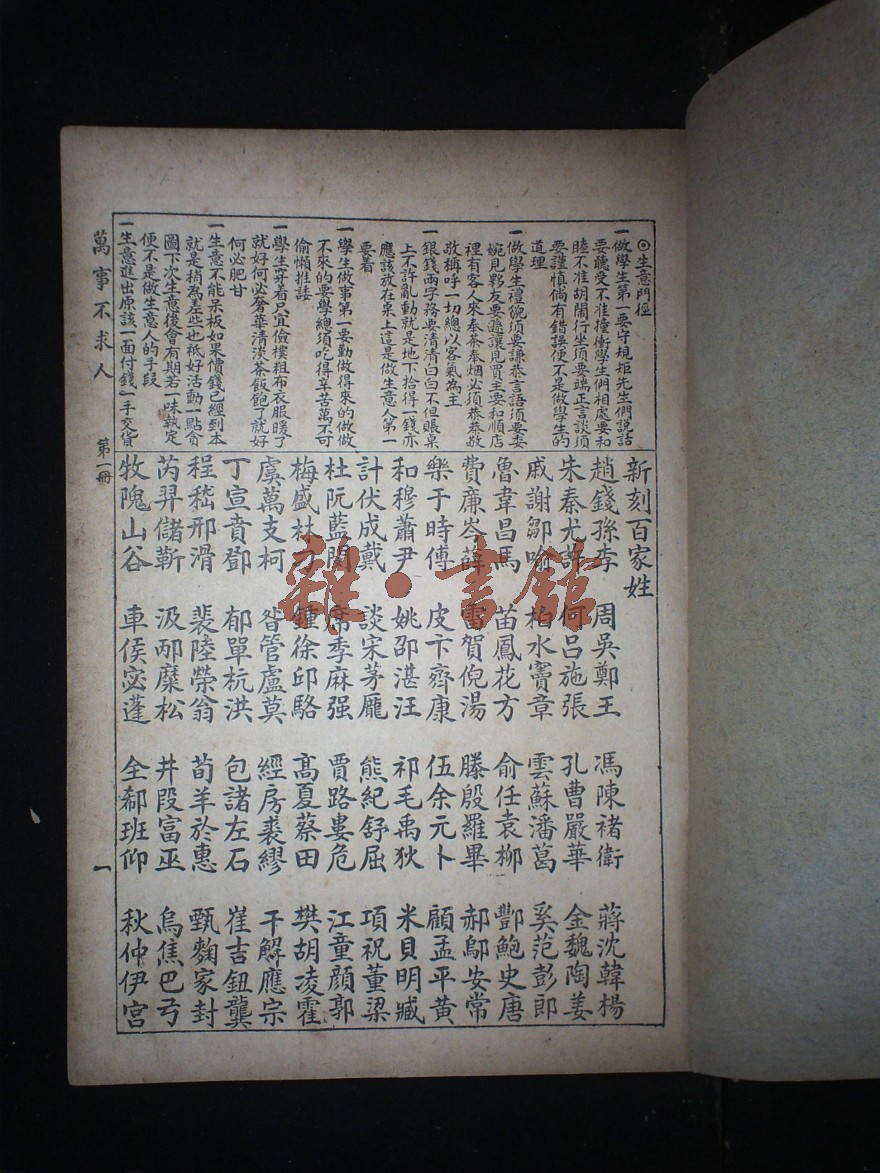 ◎生意門徑
一做學生第一要守規矩先生們說話
要聽受不准撞衝學生們相處要和
睦不准胡鬧行坐須要端正言談須
要謹慎倘有錯誤便不是做學生的
道理
一做學生禮貌須要謙恭言語須要委
婉見夥友要遜讓見買主要和順店
裡有客人來奉茶奉烟必須恭恭敬
敬稱呼一切總以客氣為主
一銀錢兩字務要清清白白不但賬桌
上不許亂動就是地下拾得一錢亦
應該放在桌上這是做生意人第一
要着
一學生做事第一要勤做得來的做做
不來的要學總須吃得辛苦萬不可
偷懶推諉
一學生穿着只宜儉樸粗布衣服暖了
就好何必奢華清淡茶飯飽了就好
何必肥甘
一生意不能呆板如果價錢已經到本
就是稍為差些也祇好活動一點會
圖下次生意後會有期若一味執定
便不是做生意人的手段
一生意進出原該一面付錢一手交貨
新刻百家姓
趙錢孫李 周吳鄭王 馮陳褚衛 蔣沈韓楊
朱秦尤許 何呂施張 孔曹嚴華 金魏陶姜
戚謝鄒喻 柏水竇章 雲蘇潘葛 奚范彭郎
魯韋昌馬 苗鳳花方 俞任袁柳 酆鮑史唐
費廉岑薛 雷賀倪湯 滕殷羅畢 郝鄔安常
樂于時傅 皮卞齊康 伍余元卜 顧孟平黃
和穆蕭尹 姚邵湛汪 祁毛禹狄 米貝明臧
計伏成戴 談宋茅龐 熊紀舒屈 項祝董梁
杜阮藍閔 席季麻强 賈路婁危 江童顏郭
梅盛林刁 鍾徐邱駱 高夏蔡田 樊胡凌霍
虞萬支柯 昝管盧莫 經房裘繆 干解應宗
丁宣賁鄧 郁單杭洪 包諸左石 崔吉鈕龔
程嵇邢滑 裴陸榮翁 荀羊於惠 甄麴家封
芮羿儲靳 汲邴糜松 井段富巫 烏焦巴弓
牧隗山谷 車侯宓蓬 全郗班仰 秋仲伊宮
萬事不求人 第一冊 一
雜·书館